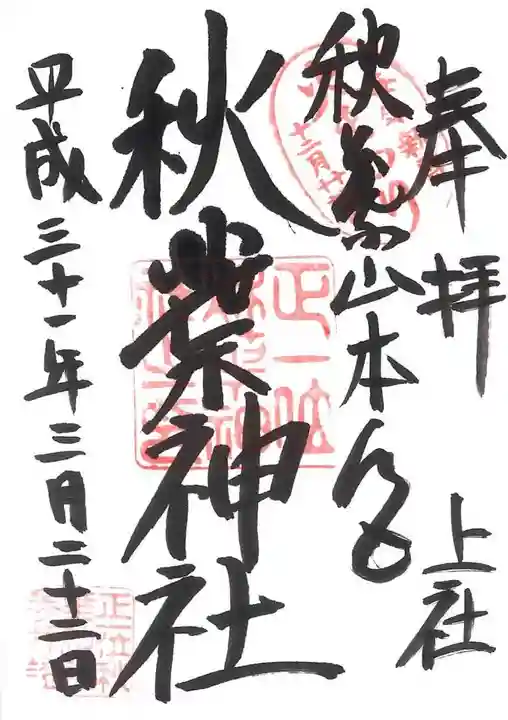 奉拝 上社
秋葉山本宮
秋葉神社
平成三十一年三月二十二日
正一位